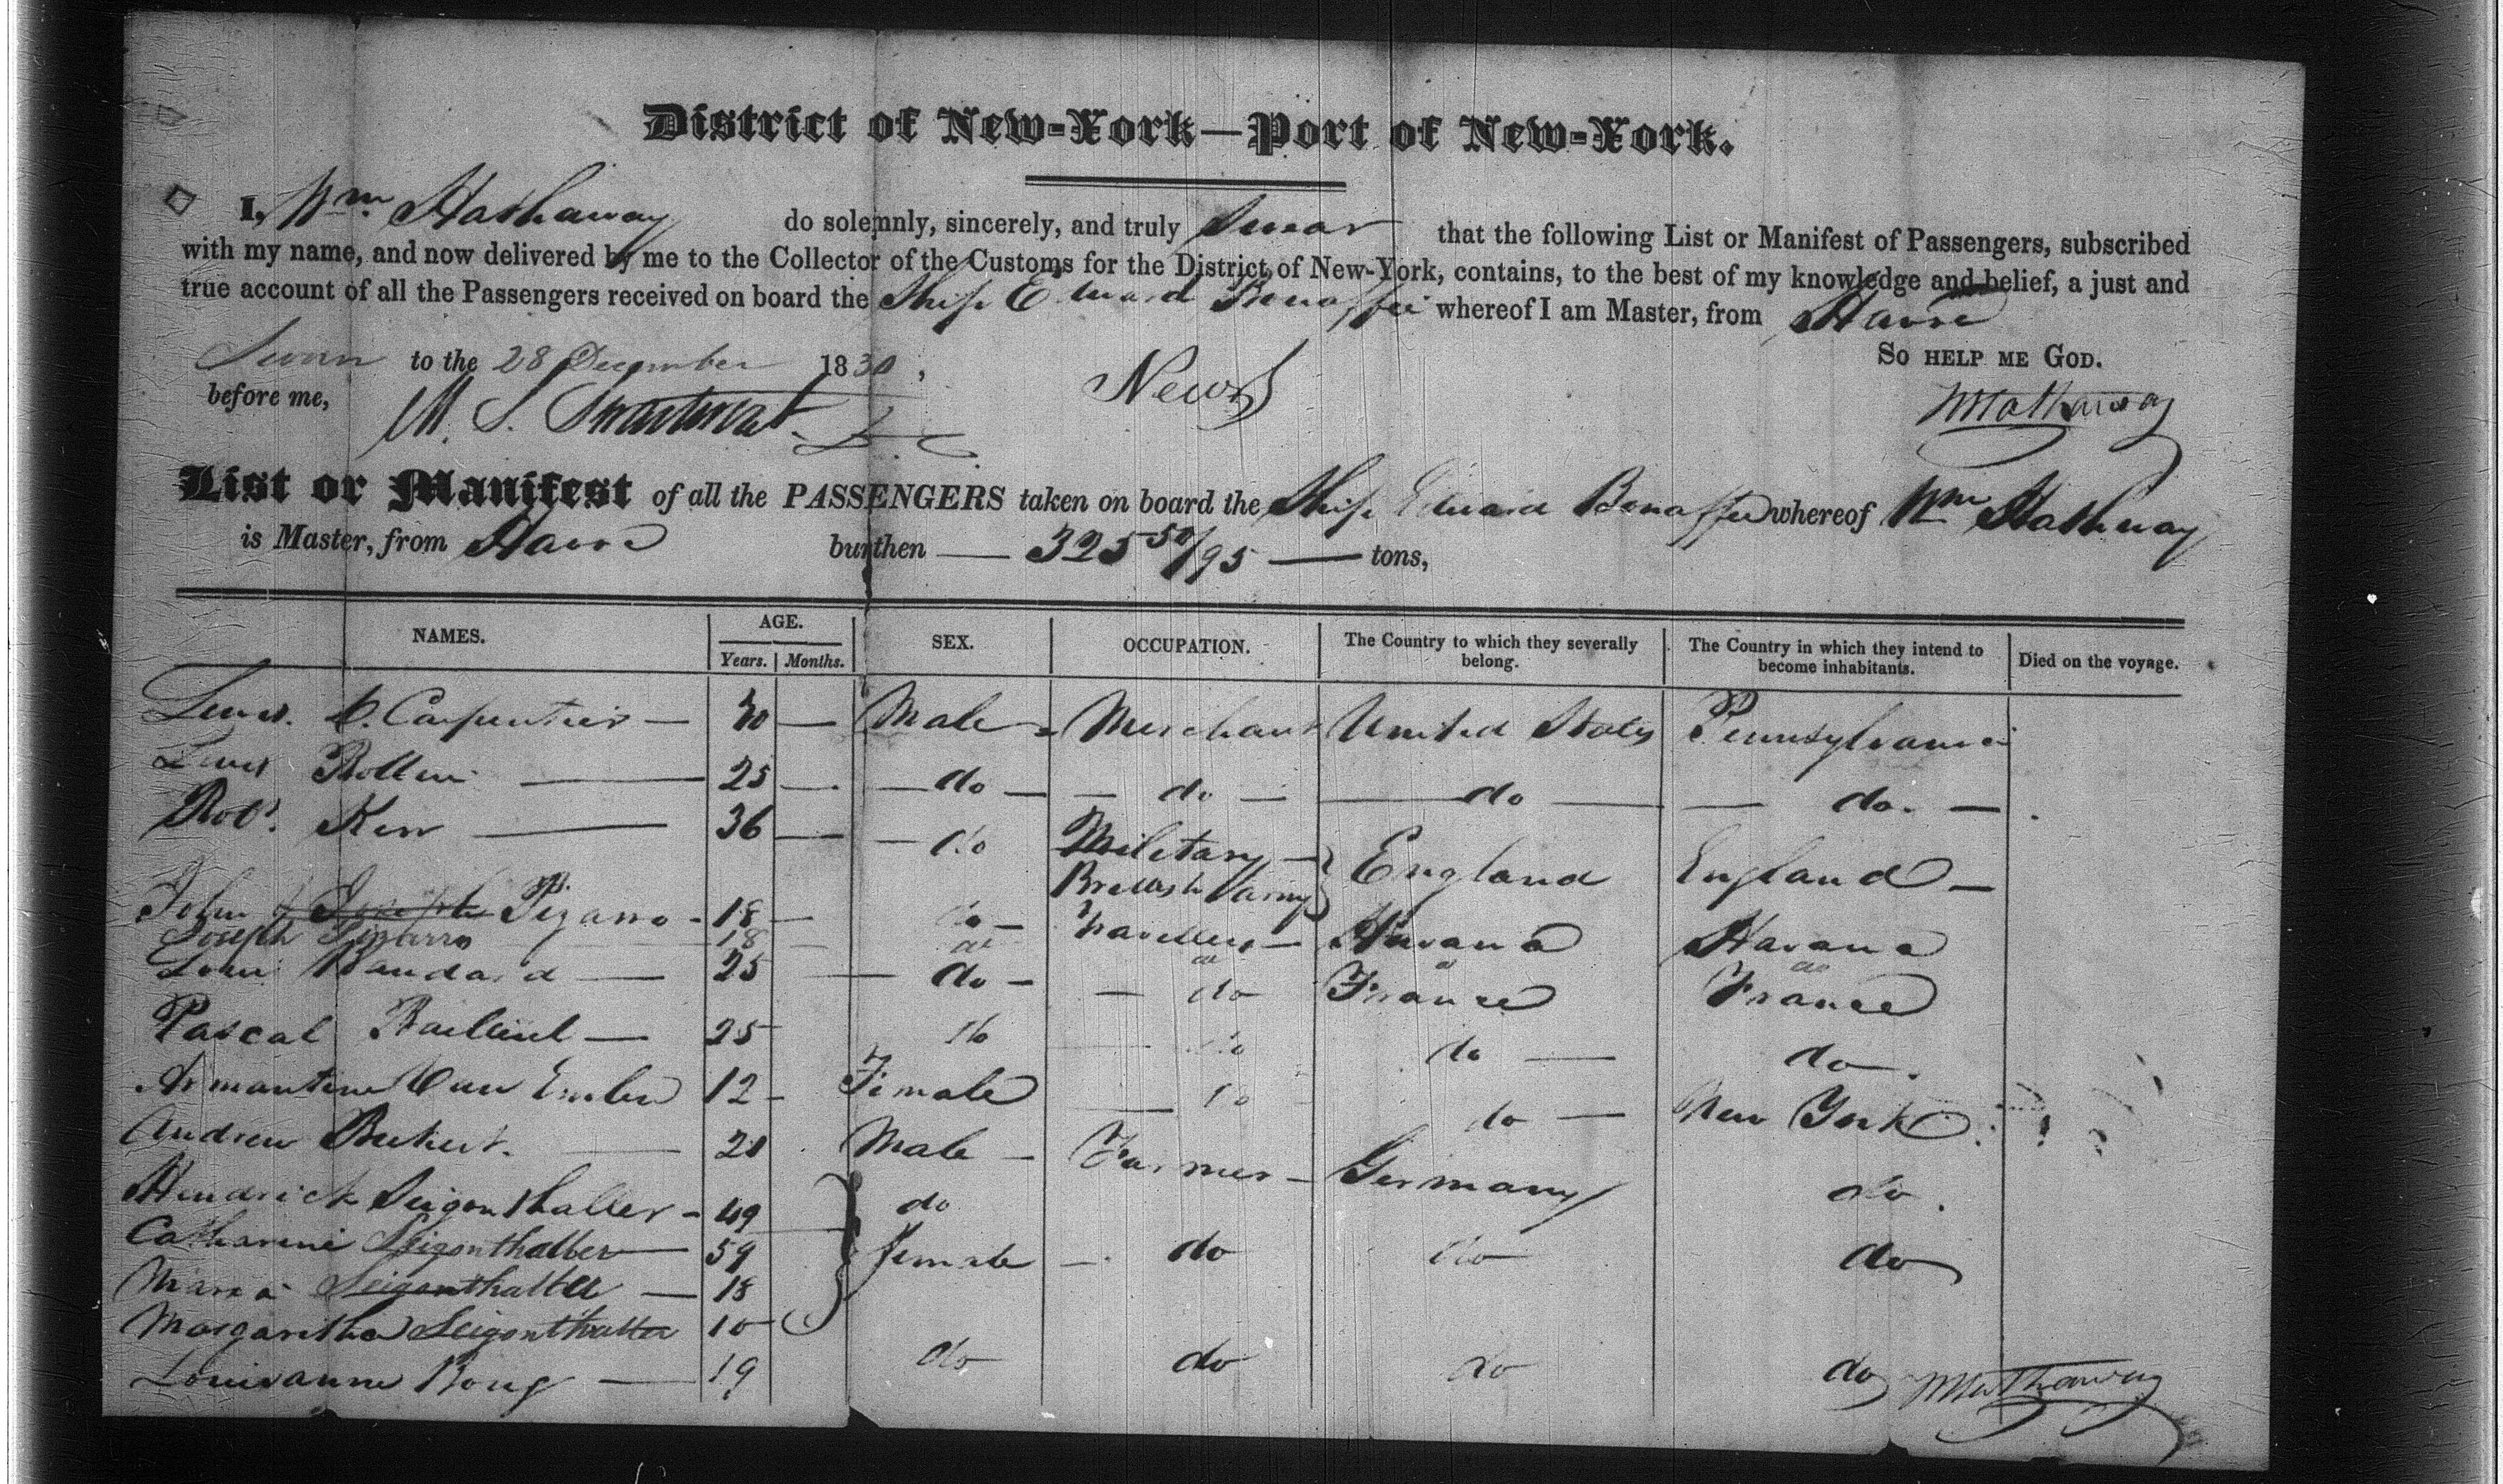 District of New-York—Port of New-York.
I, Wm. Hathaway do solemnly, sincerely, and truly Swear that the following List or Manifest of Passengers, subscribed
with my name, and now delivered by me to the Collector of the Customs for the District of New-York, contains, to the best of my knowledge and belief, a just and
true account of all the Passengers received on board the Ship Edward Bonaffee whereof I am Master, from Havre
Sworn to the 28 December 1830, SO HELP ME GOD.
before me, M. S. Swartwout
WHathaway
List or Manifest of all the PASSENGERS taken on board the Ship Edward Bonaffee whereof Wm Hathaway
is Master, from Havre burthen — 325 50/95 — tons,
NAMES. AGE. SEX. OCCUPATION. The Country to which they severally belong. The Country in which they intend to become inhabitants. Died on the voyage.
Years. Months.
Lewis. C. Carpentier — 30 — Male Merchant United States Pennsylvania
Lewis 25 — do — — do — — do — — do. —
Robt. Kerr — 36 — — do Military — British army } England England —
John Joseph P. Pizarro - 18 — do — Travellers — Havana Havana
Joseph Pizarro 18 — do do do do
Louis Baudard — 25 — do — — do France France
Pascal — 25 do do do — do.
Armantine Van 12 - Female do do — New York
Andrew — 20 Male — Farmer - Germany do.
Hendrick Seigonthaller - 49 do
Catharine Seigonthaller — 59 female — do do do
Maria Seigonthaller — 18
Margaritha Seigonthaller 10
Louisanne — 19 do do do do WHathaway